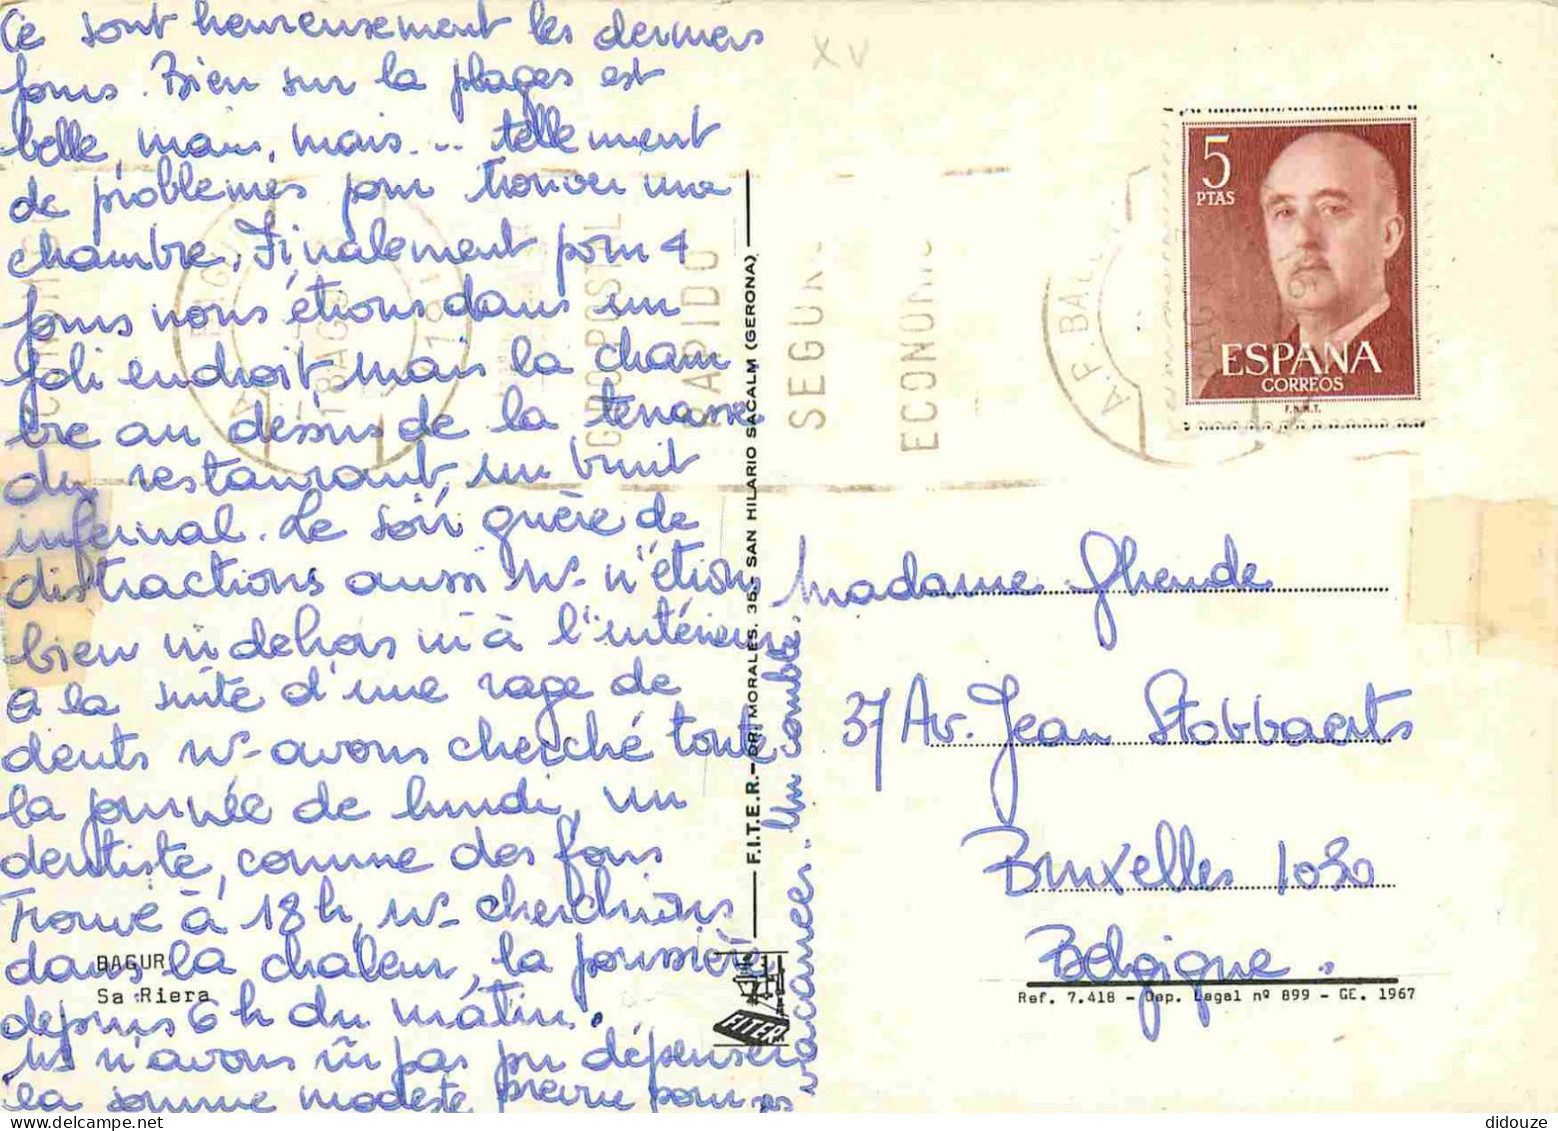 Ce sont heureusement les derniers
jours. Bien sur la plages est
belle, mais, mais... tellement
de problèmes pour trouver une
chambre. Finalement pour 4
jours nous étions dans un
joli endroit mais la cham
bre au dessus de la terrasse
du restaurant, un bruit
infernal. Le soir guère de
distractions aussi ns n'étions
bien ni dehors ni à l'intérieur.
A la suite d'une rage de
dents ns avons cherché toute
la journée de lundi, un
dentiste, comme des fous
Trouvé à 18h, ns cherchions
dans la chaleur, la poussière
depuis 6h du matin.
ns n'avons mi pas pu dépenser
la somme modeste prévue pour
vacances. Un comble.
BAGUR
Sa Riera
F.I.T.E.R. - DR. MORALES, 35 - SAN HILARIO SACALM (GERONA)
FITER
XV
5
PTAS
ESPAÑA
CORREOS
F.N.M.T.
POSTAL
RAPIDO
SEGUR
ECONOMIC
Madame Ghende
37 Av. Jean Stobbaerts
Bruxelles 1030
Belgique.
Ref. 7.418 - Dep. Legal nº 899 - GE. 1967
didouze